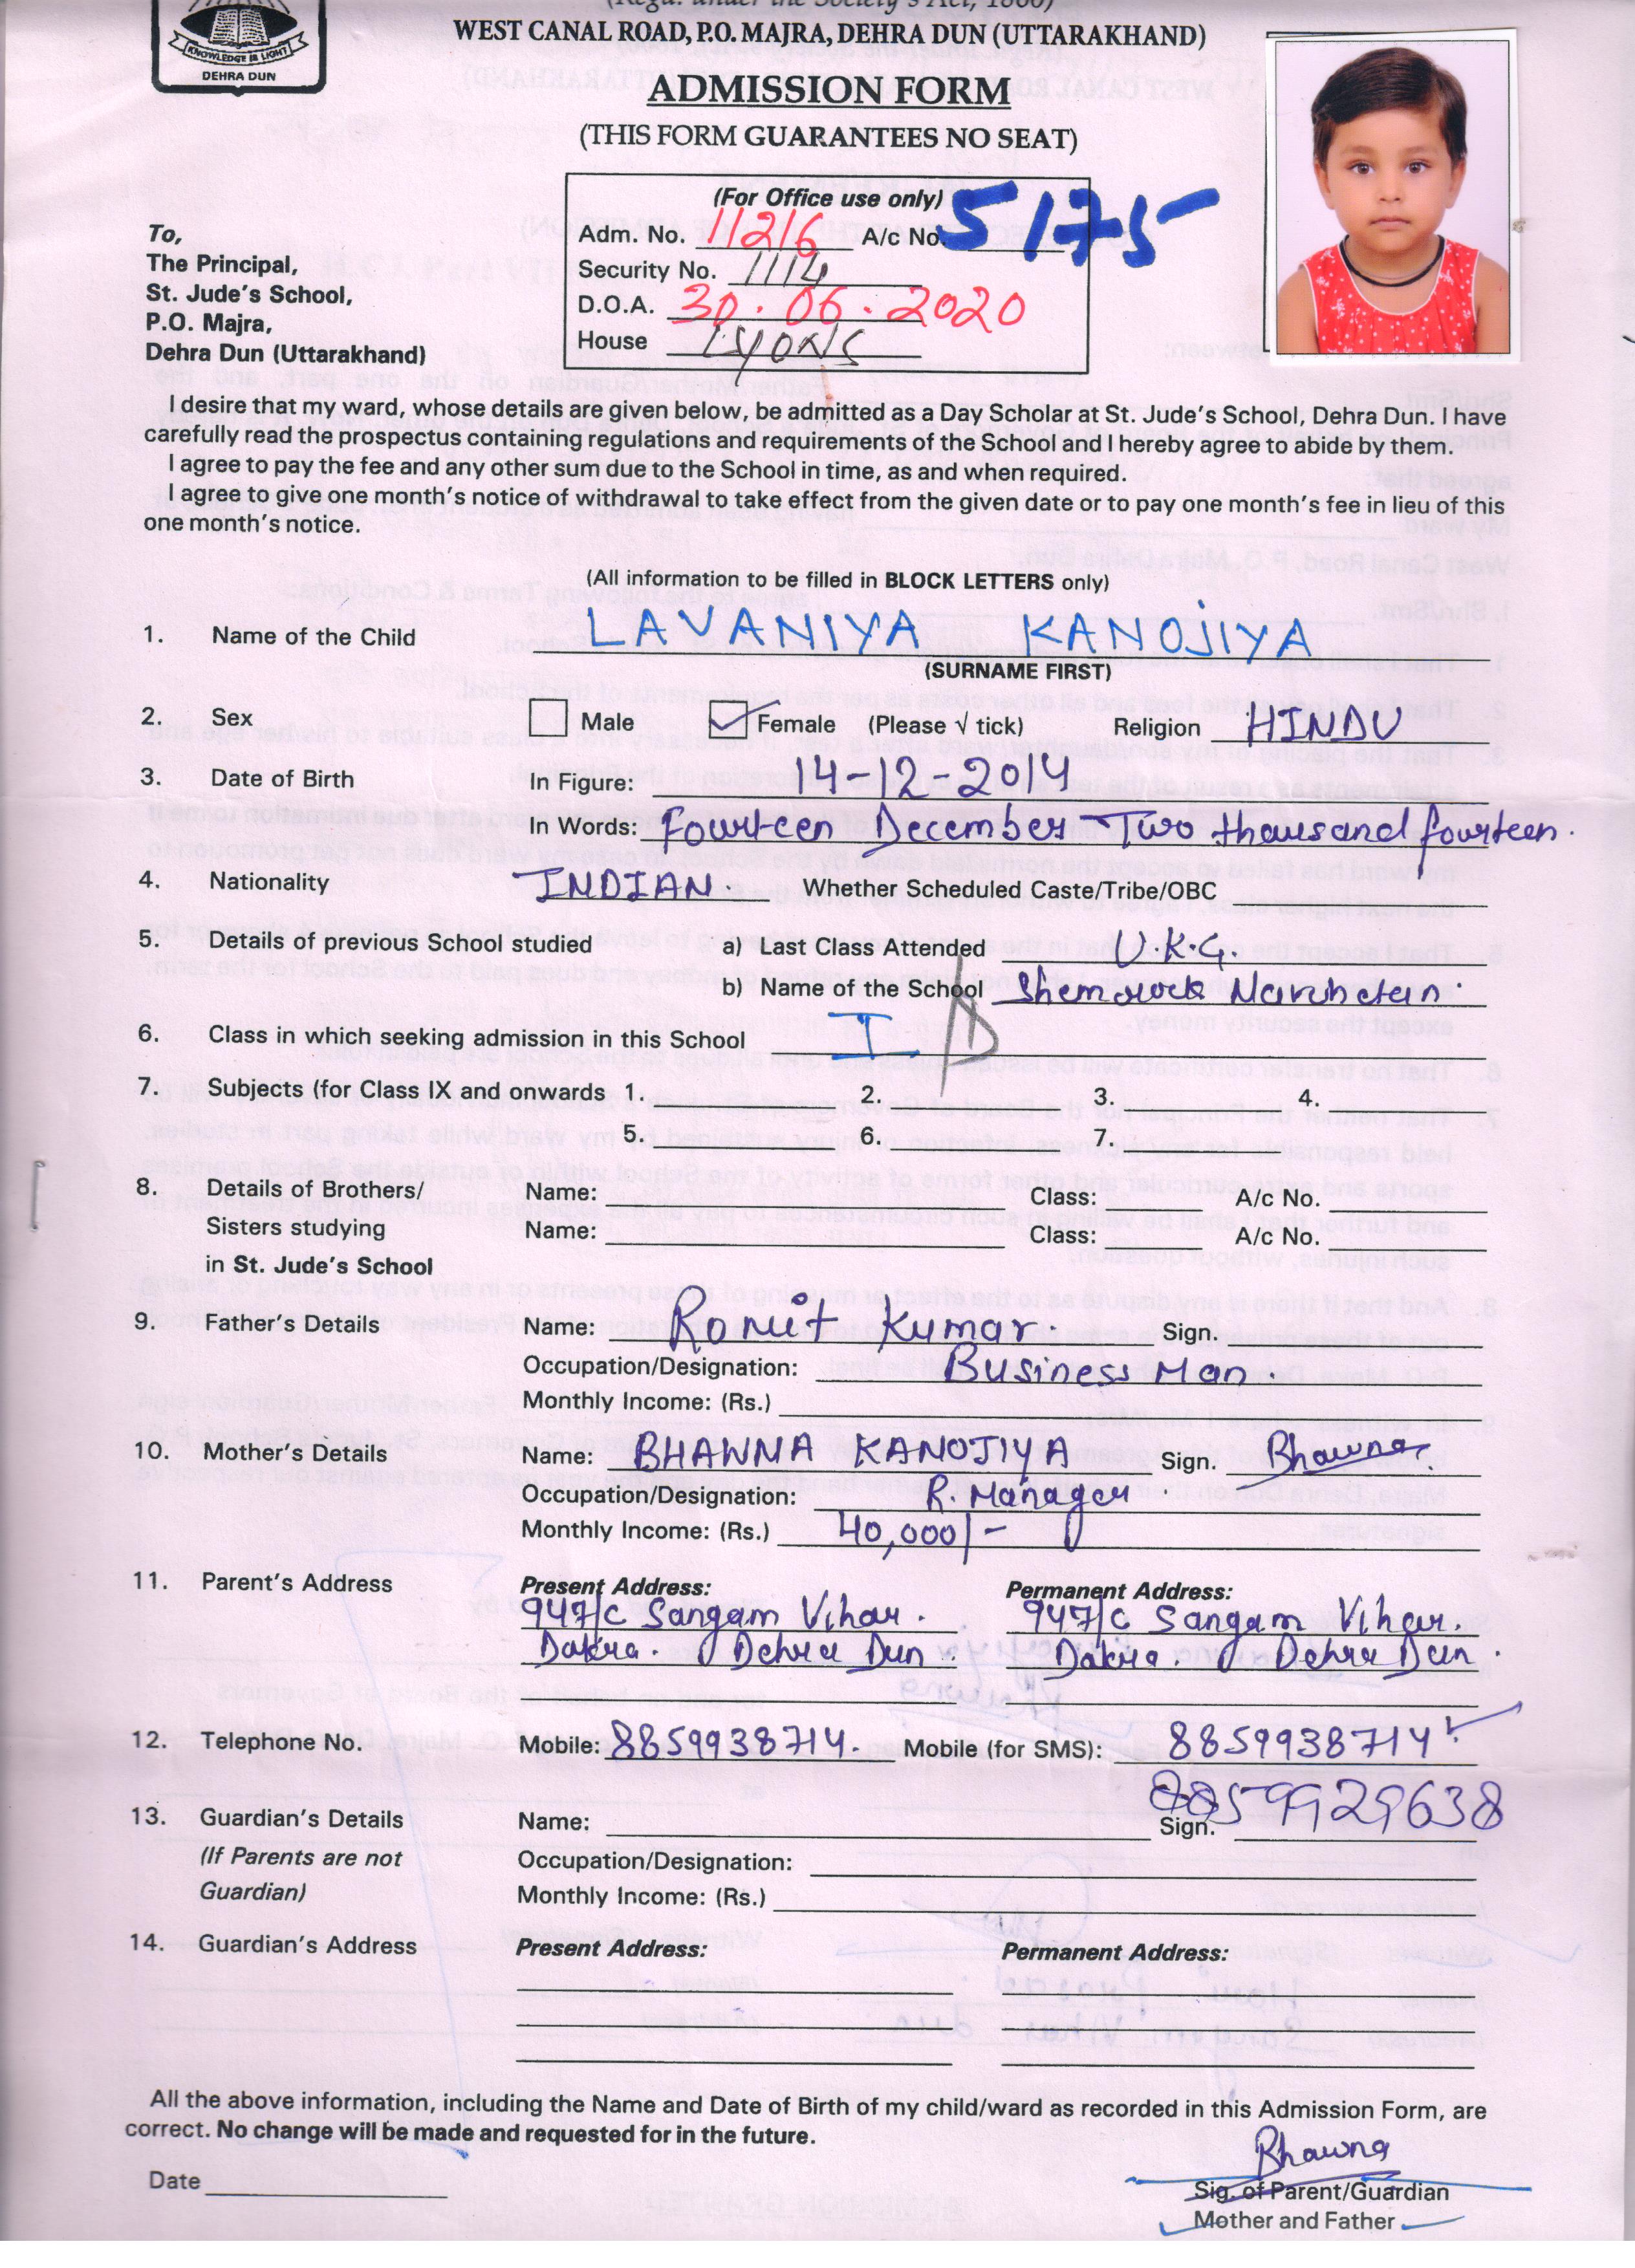 (Regd. under the Society's Act, 1860)
WEST CANAL ROAD, P.O. MAJRA, DEHRA DUN (UTTARAKHAND)
KNOWLEDGE IS LIGHT
DEHRA DUN
ADMISSION FORM
(THIS FORM GUARANTEES NO SEAT)
(For Office use only)
Adm. No. 11216 A/c No. 5175
Security No. 1114
D.O.A. 30.06.2020
House LYONS
To,
The Principal,
St. Jude's School,
P.O. Majra,
Dehra Dun (Uttarakhand)
I desire that my ward, whose details are given below, be admitted as a Day Scholar at St. Jude's School, Dehra Dun. I have
carefully read the prospectus containing regulations and requirements of the School and I hereby agree to abide by them.
I agree to pay the fee and any other sum due to the School in time, as and when required.
I agree to give one month's notice of withdrawal to take effect from the given date or to pay one month's fee in lieu of this
one month's notice.
(All information to be filled in BLOCK LETTERS only)
1. Name of the Child LAVANIYA KANOJIYA
(SURNAME FIRST)
2. Sex Male Female (Please √ tick) Religion HINDU
3. Date of Birth In Figure: 14-12-2014
In Words: Fourteen December Two thousand fourteen.
4. Nationality INDIAN. Whether Scheduled Caste/Tribe/OBC
5. Details of previous School studied a) Last Class Attended U.K.G.
b) Name of the School Shemrock
6. Class in which seeking admission in this School I D
7. Subjects (for Class IX and onwards 1. 2. 3. 4.
5. 6. 7.
8. Details of Brothers/ Name: Class: A/c No.
Sisters studying Name: Class: A/c No.
in St. Jude's School
9. Father's Details Name: Ronit Kumar. Sign.
Occupation/Designation: Business Man.
Monthly Income: (Rs.)
10. Mother's Details Name: BHAWNA KANOJIYA Sign. Bhawna
Occupation/Designation: R. Manager
Monthly Income: (Rs.) 40,000/-
11. Parent's Address Present Address: Permanent Address:
947/C Sangam Vihar. 947/C Sangam Vihar.
Dakra. Dehra Dun. Dakra. Dehra Dun.
12. Telephone No. Mobile: 8859938714. Mobile (for SMS): 8859938714
8859929638
13. Guardian's Details Name: Sign.
(If Parents are not Occupation/Designation:
Guardian) Monthly Income: (Rs.)
14. Guardian's Address Present Address: Permanent Address:
All the above information, including the Name and Date of Birth of my child/ward as recorded in this Admission Form, are
correct. No change will be made and requested for in the future.
Bhawna
Date Sig. of Parent/Guardian
Mother and Father